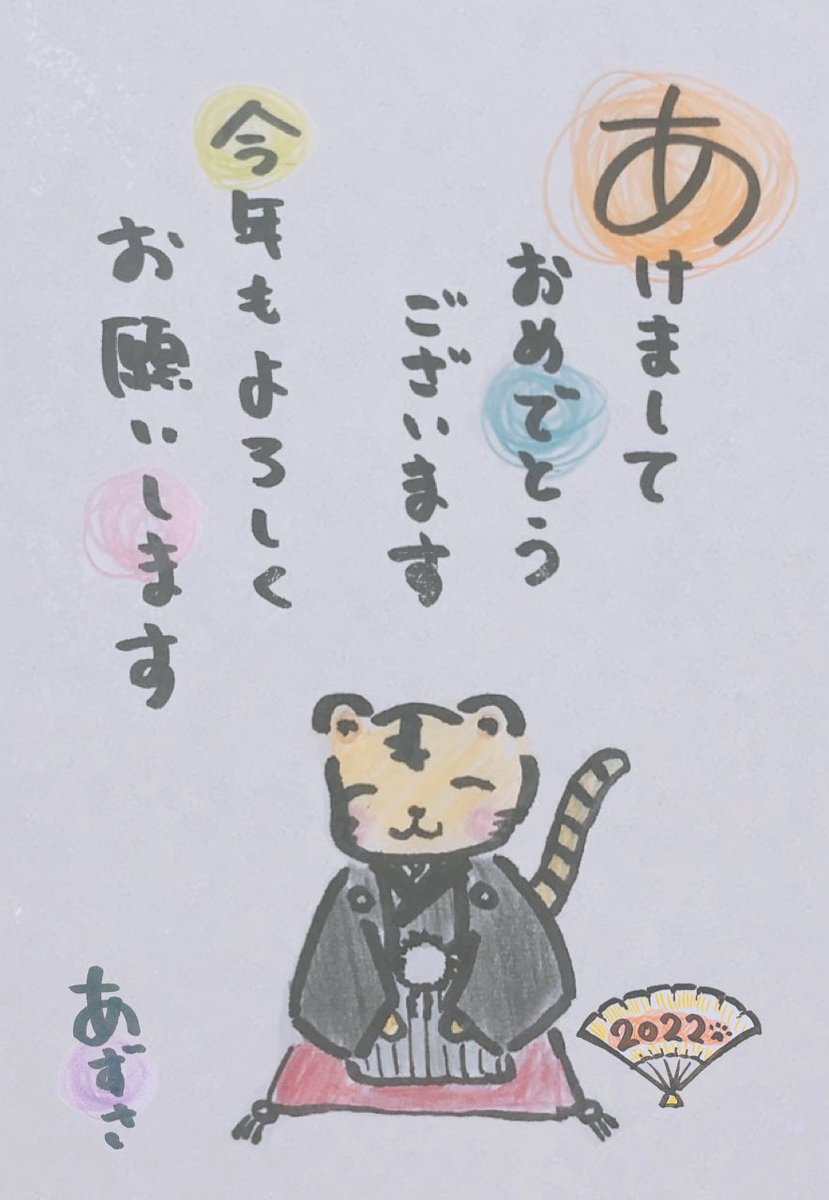 あけまして
おめでとう
ございます
今年もよろしく
お願いします
あずさ
2022